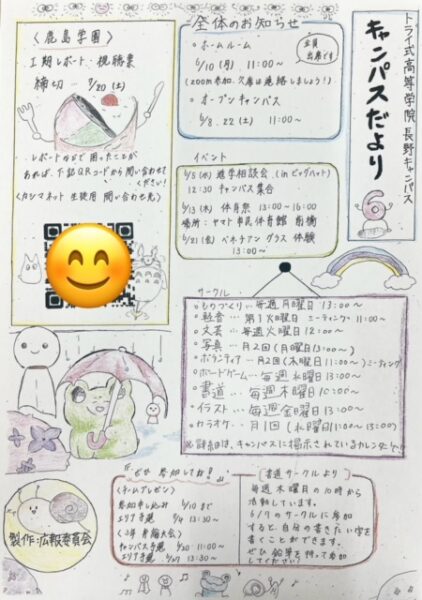 トライ式高等学院 長野キャンパス
キャンパスだより
6
全体のお知らせ
。ホームルーム
6/10(月) 11:00〜
(zoom参加、欠席は連絡しましょう!)
全員
出席です
。オープンキャンパス
6/8.22(土) 11:00〜
<鹿島学園>
I期レポート・視聴票
締切… 7/20(土)
レポートなどで困ったことが
あれば、下記QRコードから問い合わせて
ください!
<カシマネット 生徒用 問い合わせ先>
イベント
6/5(水) 進学相談会 (inビッグハット)
12:30 キャンパス集合
6/13(木) 体育祭 13:00〜16:00
場所:ヤマト市民体育館 前橋
6/21(金) ベネチアングラス体験
13:00〜
サークル
。ものづくり…毎週月曜日 13:00〜
。軽音…第1火曜日 ミーティング 11:00〜
。文芸…毎週火曜日 12:00〜
。写真…月2回(月曜日13:00〜)
。ボランティア…月2回(木曜日11:00〜)ミーティング
。ボードゲーム…毎週水曜日13:00〜
。書道…毎週木曜日10:00〜
。イラスト…毎週金曜日13:00〜
。カラオケ…月1回(水曜日11:00〜13:00)
※詳細は、キャンパスに掲示されているカレンダーへ
ぜひ参加してね!
<チームプレゼン>
参加申し込み 6/10まで
エリア予選 13:30〜
キャンパス予選 6/20 11:00〜
エリア予選 6/27 13:30〜
<書道サークルより>
毎週木曜日の10時から
活動しています。
サークルに参加
すると自分の書きたい字を
書くことができます。
ぜひ 鉛筆を持って参加
してください!
製作:広報委員会